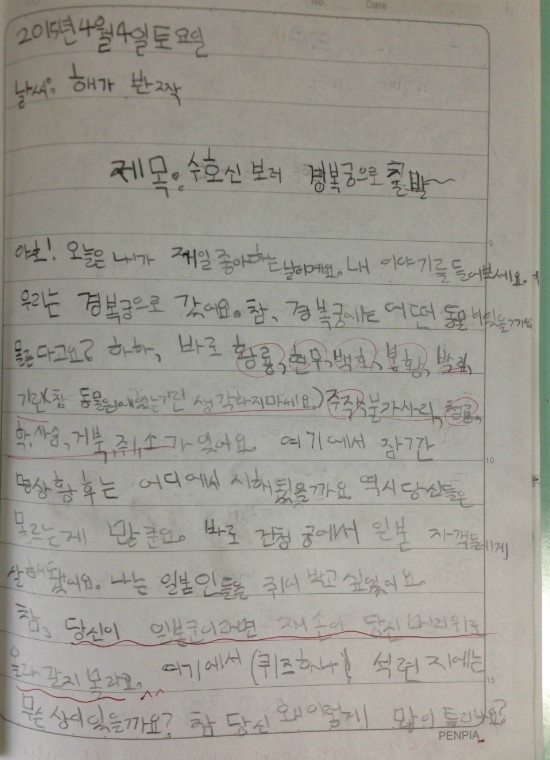 No. Date
2015년 4월 4일 토요일
날씨: 해가 반짝
제목: 수호신 보러 경복궁으로 출발~
야호! 오늘은 내가 제일 좋아하는 날이에요. 내 이야기를 들어보세요.
우리는 경복궁으로 갔어요. 참, 경복궁에는 어떤 동물
모른다고요? 하하, 바로 황룡, 현무, 백호, 봉황, 박쥐,
기린(참 동물원에 있는 기린 생각하지마세요.) 주작, 불가사리, 청룡,
학, 사슴, 거북, 쥐, 소가 있어요. 여기에서 잠간
명상황후는 어디에서 시해됬을까요 역시 당신들은
모르는게 많군요. 바로 건청궁에서 일본 자객들에게
살해됬어요. 나는 일본인들을 쥐어박고 싶었어요.
참, 당신이 일본군이라면 제 손이 당신 머리위로
올라갈지 몰라요. ^^ 여기에서 (퀴즈하나!) 석련지에는
무슨 상이있을까요? 참 당신 왜이렇게 많이 틀리나요?
5
10
15
PENPIA